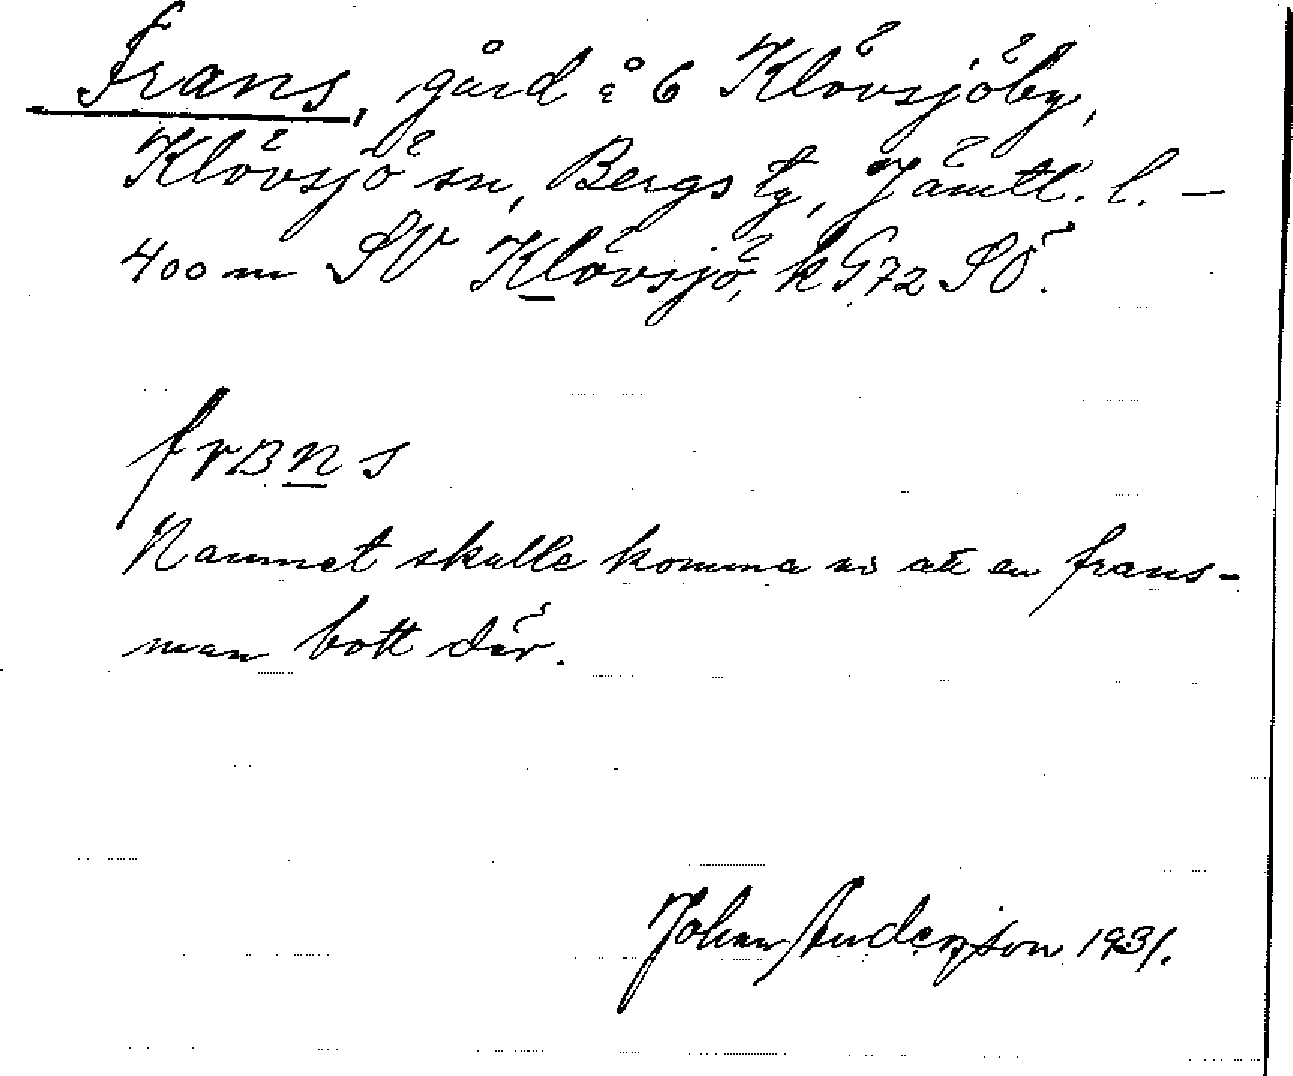 Frans, gård å 6 Klövsjöby,
Klövsjö sn, Bergs tg, Jämtl. l. –
400 m SV Klövsjö, k G72 SÖ.
frans
Namnet skulle komma av att en frans-
man bott där.
Johan Anderzson 1931.